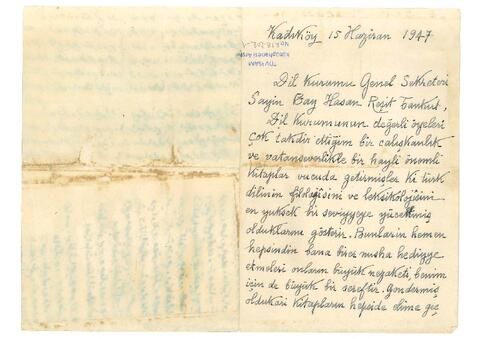 Kadıköy 15 Haziran 1947
Dil Kurumu Genel Sekreteri
Sayin Bay Hasan Reşit Tankut,
Dil Kurumunun değerli üyeleri
çok takdir ettiğim bir çalışkanlık
ve vatanseverlikle bir hayli önemli
kitaplar vucuda getirmişler ki türk
dilinin filolojisini ve leksikolojisini
en yuksek bir seviyyeye yüceltmiş
olduklarını gösterir. Bunların hemen
hepsindin bana birer nusha hediyye
etmeleri onların büyük nezaketi, benim
için de büyük bir şereftir. Göndermiş
oldukları kitapların hepside elime geç